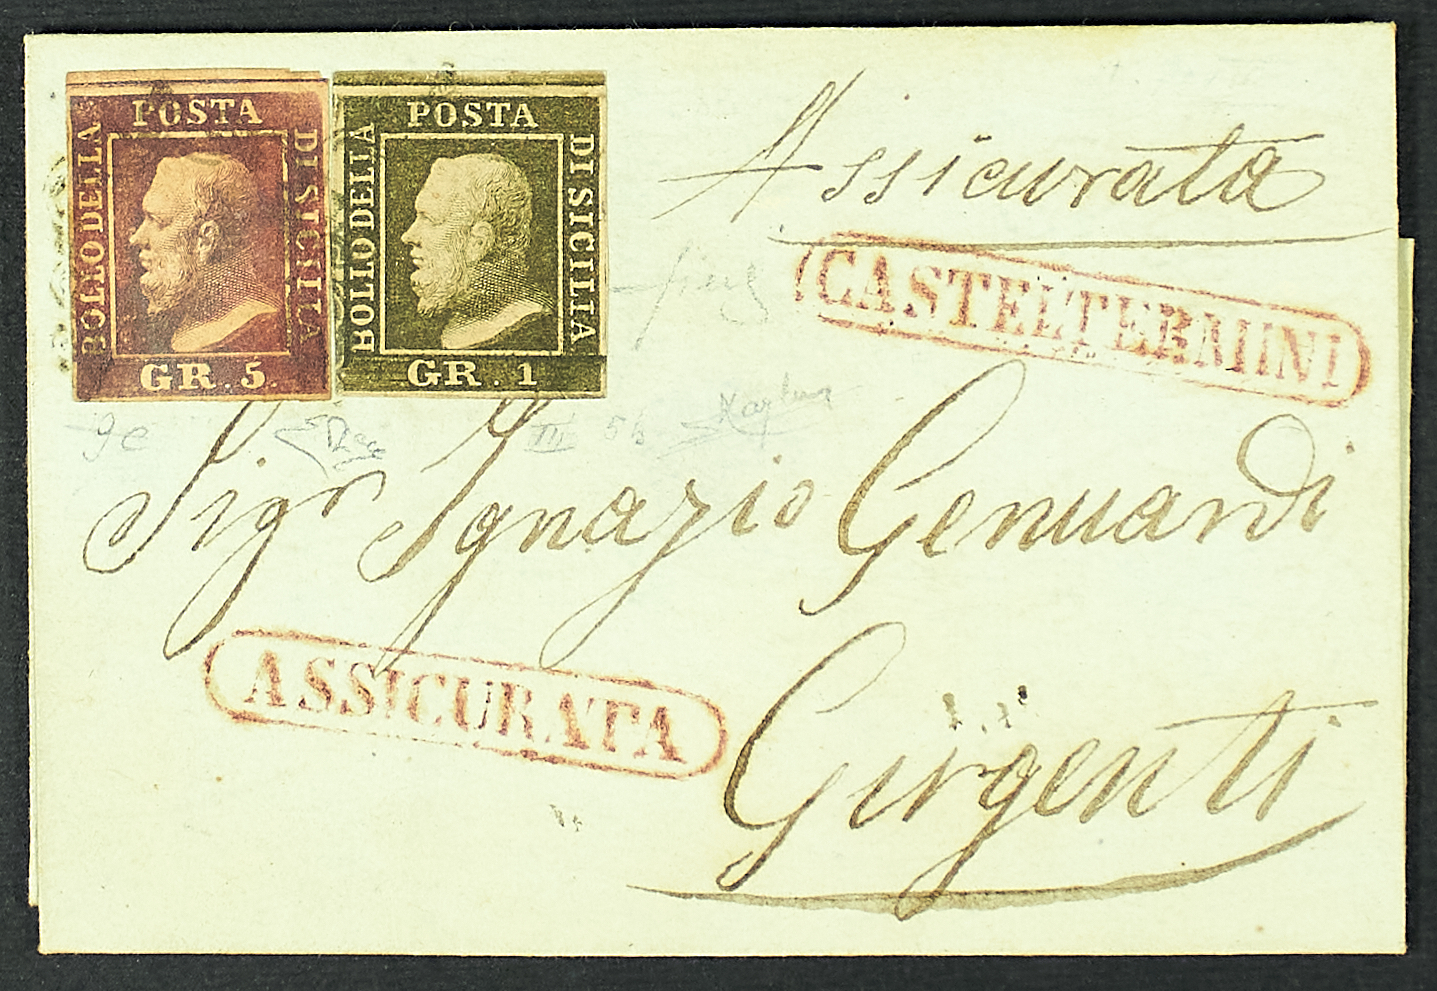 POSTA
BOLLO DELLA
DI SICILIA
GR. 5.
POSTA
BOLLO DELLA
DI SICILIA
GR. 1
Assicurata
CASTELTERMINI
9c
III 5b
Sigr Ignazio Genuardi
ASSICURATA
Girgenti